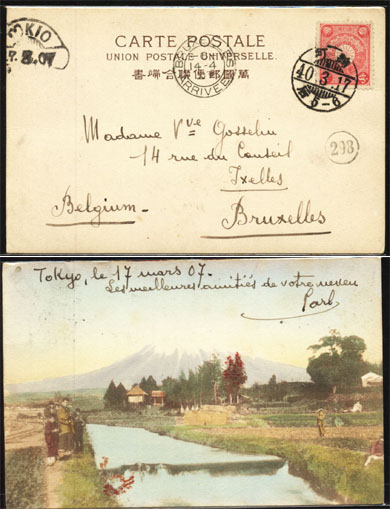 TOKIO
7.3.07
CARTE POSTALE
UNION POSTALE UNIVERSELLE.
書端郵合聯便郵國萬
14-4
ARRIVEE
40-3-17
后5-6
Madame Vve Gosselin
14 rue du Conseil
Ixelles
298
Belgium.
Bruxelles
Tokyo, le 17 mars 07.
Les meilleures amitiés de votre neveu